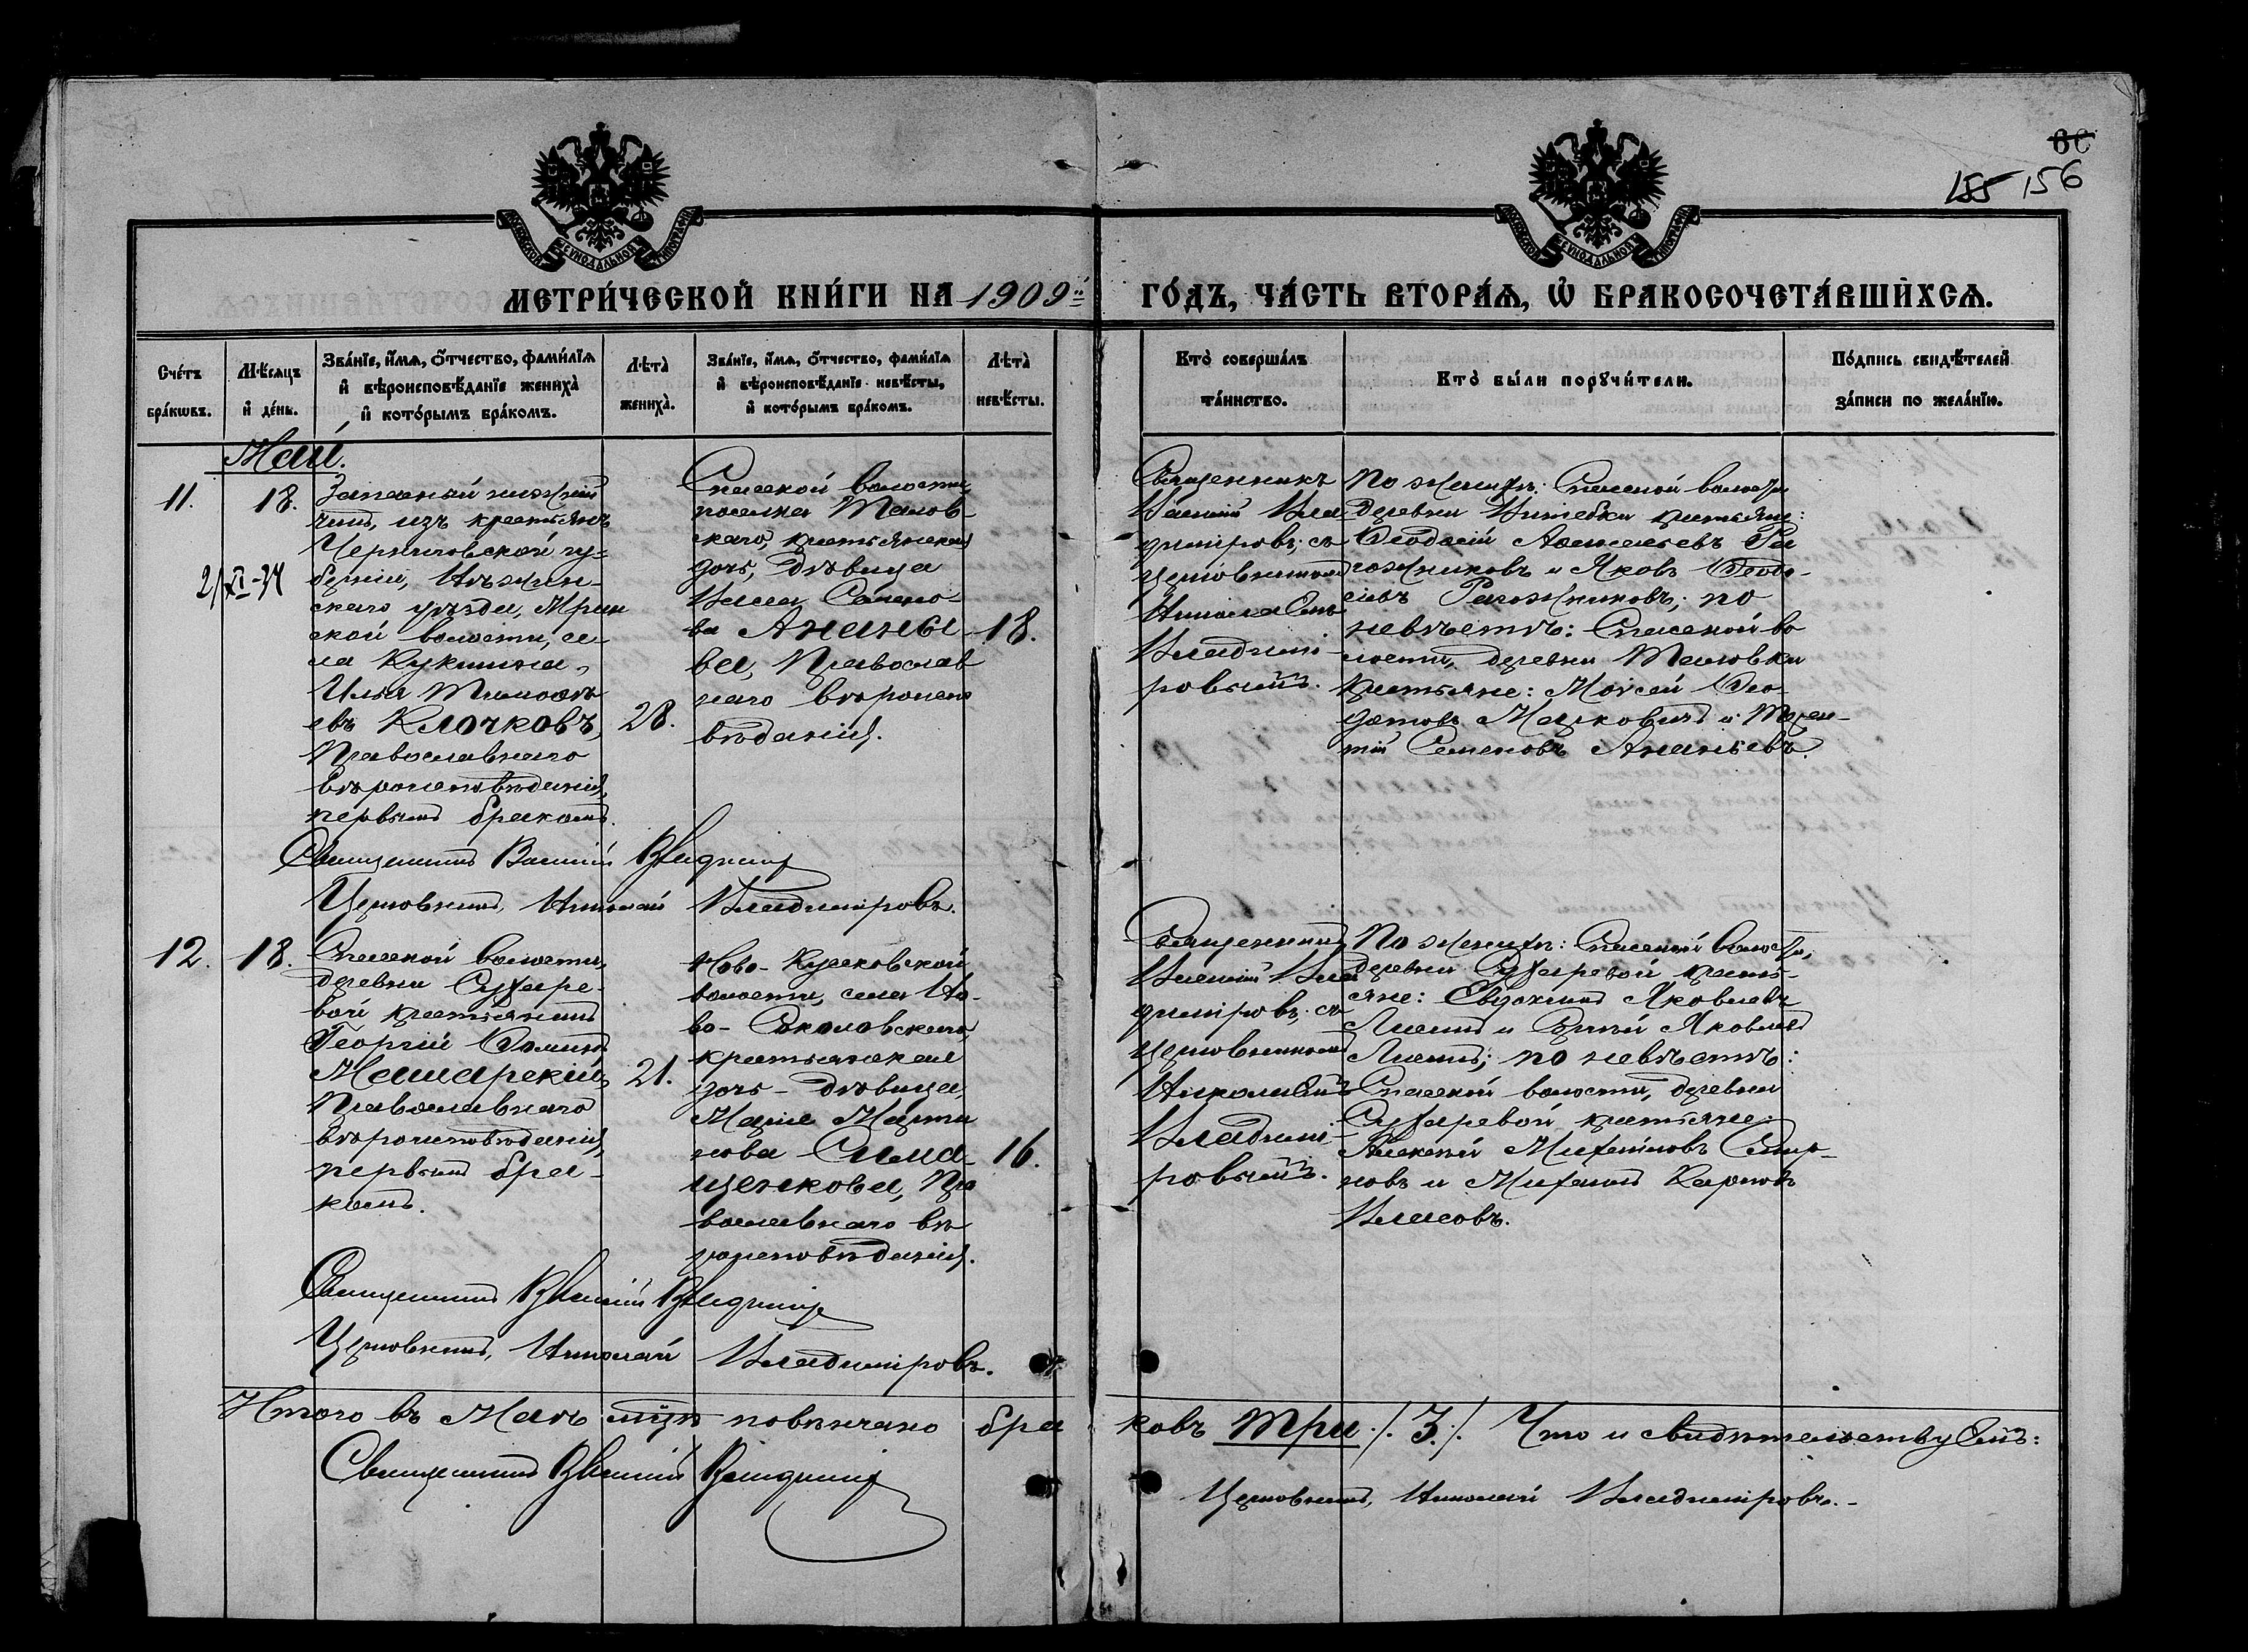 60
155 156
МОСКОВСКОЙ СѴНОДАЛЬНОЙ ТИПОГРАФІИ
МОСКОВСКОЙ СѴНОДАЛЬНОЙ ТИПОГРАФІИ
МЕТРИ́ЧЕСКОЙ КНИ́ГИ НА 1909й ГО́ДЪ, ЧА́СТЬ ВТОРА́Ѧ, Ѡ҆ БРАКОСОЧЕТА́ВШИХСѦ.
Сче́тъ
бра́кѡвъ.
Мѣ́сяцъ
и҆ де́нь.
Зва́нїе, и҆́мѧ, ѻ҆́тчество, фами́лїѧ
и҆ вѣроисповѣ́данїе жениха̀
и҆ кото́рымъ бра́комъ.
Лѣ́та
жениха̀.
Зва́нїе, и҆́мѧ, ѻ҆́тчество, фами́лїѧ
и҆ вѣроисповѣ́данїе невѣ́сты,
и҆ кото́рымъ бра́комъ.
Лѣ́та
невѣ́сты.
Кто̀ соверша́лъ
та́инство.
Кто̀ бы́ли порꙋчи́тели.
По́дпись свидѣ́телей
за́писи по жела́нїю.
Май.
11.
18.
21/XI-34
Запасный нижній
чинъ, изъ крестьянъ
Черниговской гу-
берніи, Нѣжин-
скаго уѣзда, Мрин
ской волости, се-
ла Кукшина,
Илья Тимоѳѣ
евъ Клочковъ,
Православнаго
вѣроисповѣданія,
первымъ бракомъ.
28.
Спасской волости,
поселка Талов
скаго, крестьянская
дочь, дѣвица
Семено-
ва Ананьі
ва, Православ
наго вѣроиспо
вѣданія.
18.
Священникъ
Василій Вла
диміровъ, съ
церковникомъ
Николаемъ
Владимі-
ровымъ.
По женихѣ: Спасской волости
деревни Витебки крестьяне:
Ѳеодосій Алексѣевъ Ра
гожниковъ и Яковъ Ѳеодо-
сіевъ Рагожниковъ; по
невѣстѣ: Спасской во
лости, деревни Таловки
крестьяне: Моисей Ѳео-
дотовъ Мацковичъ и Терен-
тій Семеновъ Ананьевъ.
Священникъ Василій Владиміровъ
Церковникъ, Николай Владиміровъ.
12.
18.
Спасской волости,
деревни Сухаре-
вой крестьянинъ
Георгій Ѳоминъ
Машарскій,
Православнаго
вѣроисповѣданія,
первымъ бра-
комъ.
21.
Ново-Кусковской
волости, села Но-
во-Соколовскаго,
крестьянская
дочь-дѣвица,
Марія Марты
нова Сима-
щенкова, Пра
вославнаго вѣ
роисповѣданія.
16.
Священникъ
Василій Вла
диміровъ, съ
церковникомъ
Николаемъ
Владимі-
ровымъ.
По женихѣ: Спасской волости,
деревни Сухаревой кресть-
яне: Евдокимъ Яковлевъ
и Сергѣй Яковлевъ
по невѣстѣ:
Спасской волости, деревни
Сухаревой крестьяне:
Алексѣй Михайловъ Смир-
новъ и Михаилъ Карповъ
Власовъ.
Священникъ Василій Владиміровъ
Церковникъ, Николай Владиміровъ.
Итого въ Маѣ мцѣ повѣнчано браковъ три /.3./. Что и свидѣтельствуемъ:
Священникъ Василій Владиміровъ
Церковникъ, Николай Владиміровъ.-